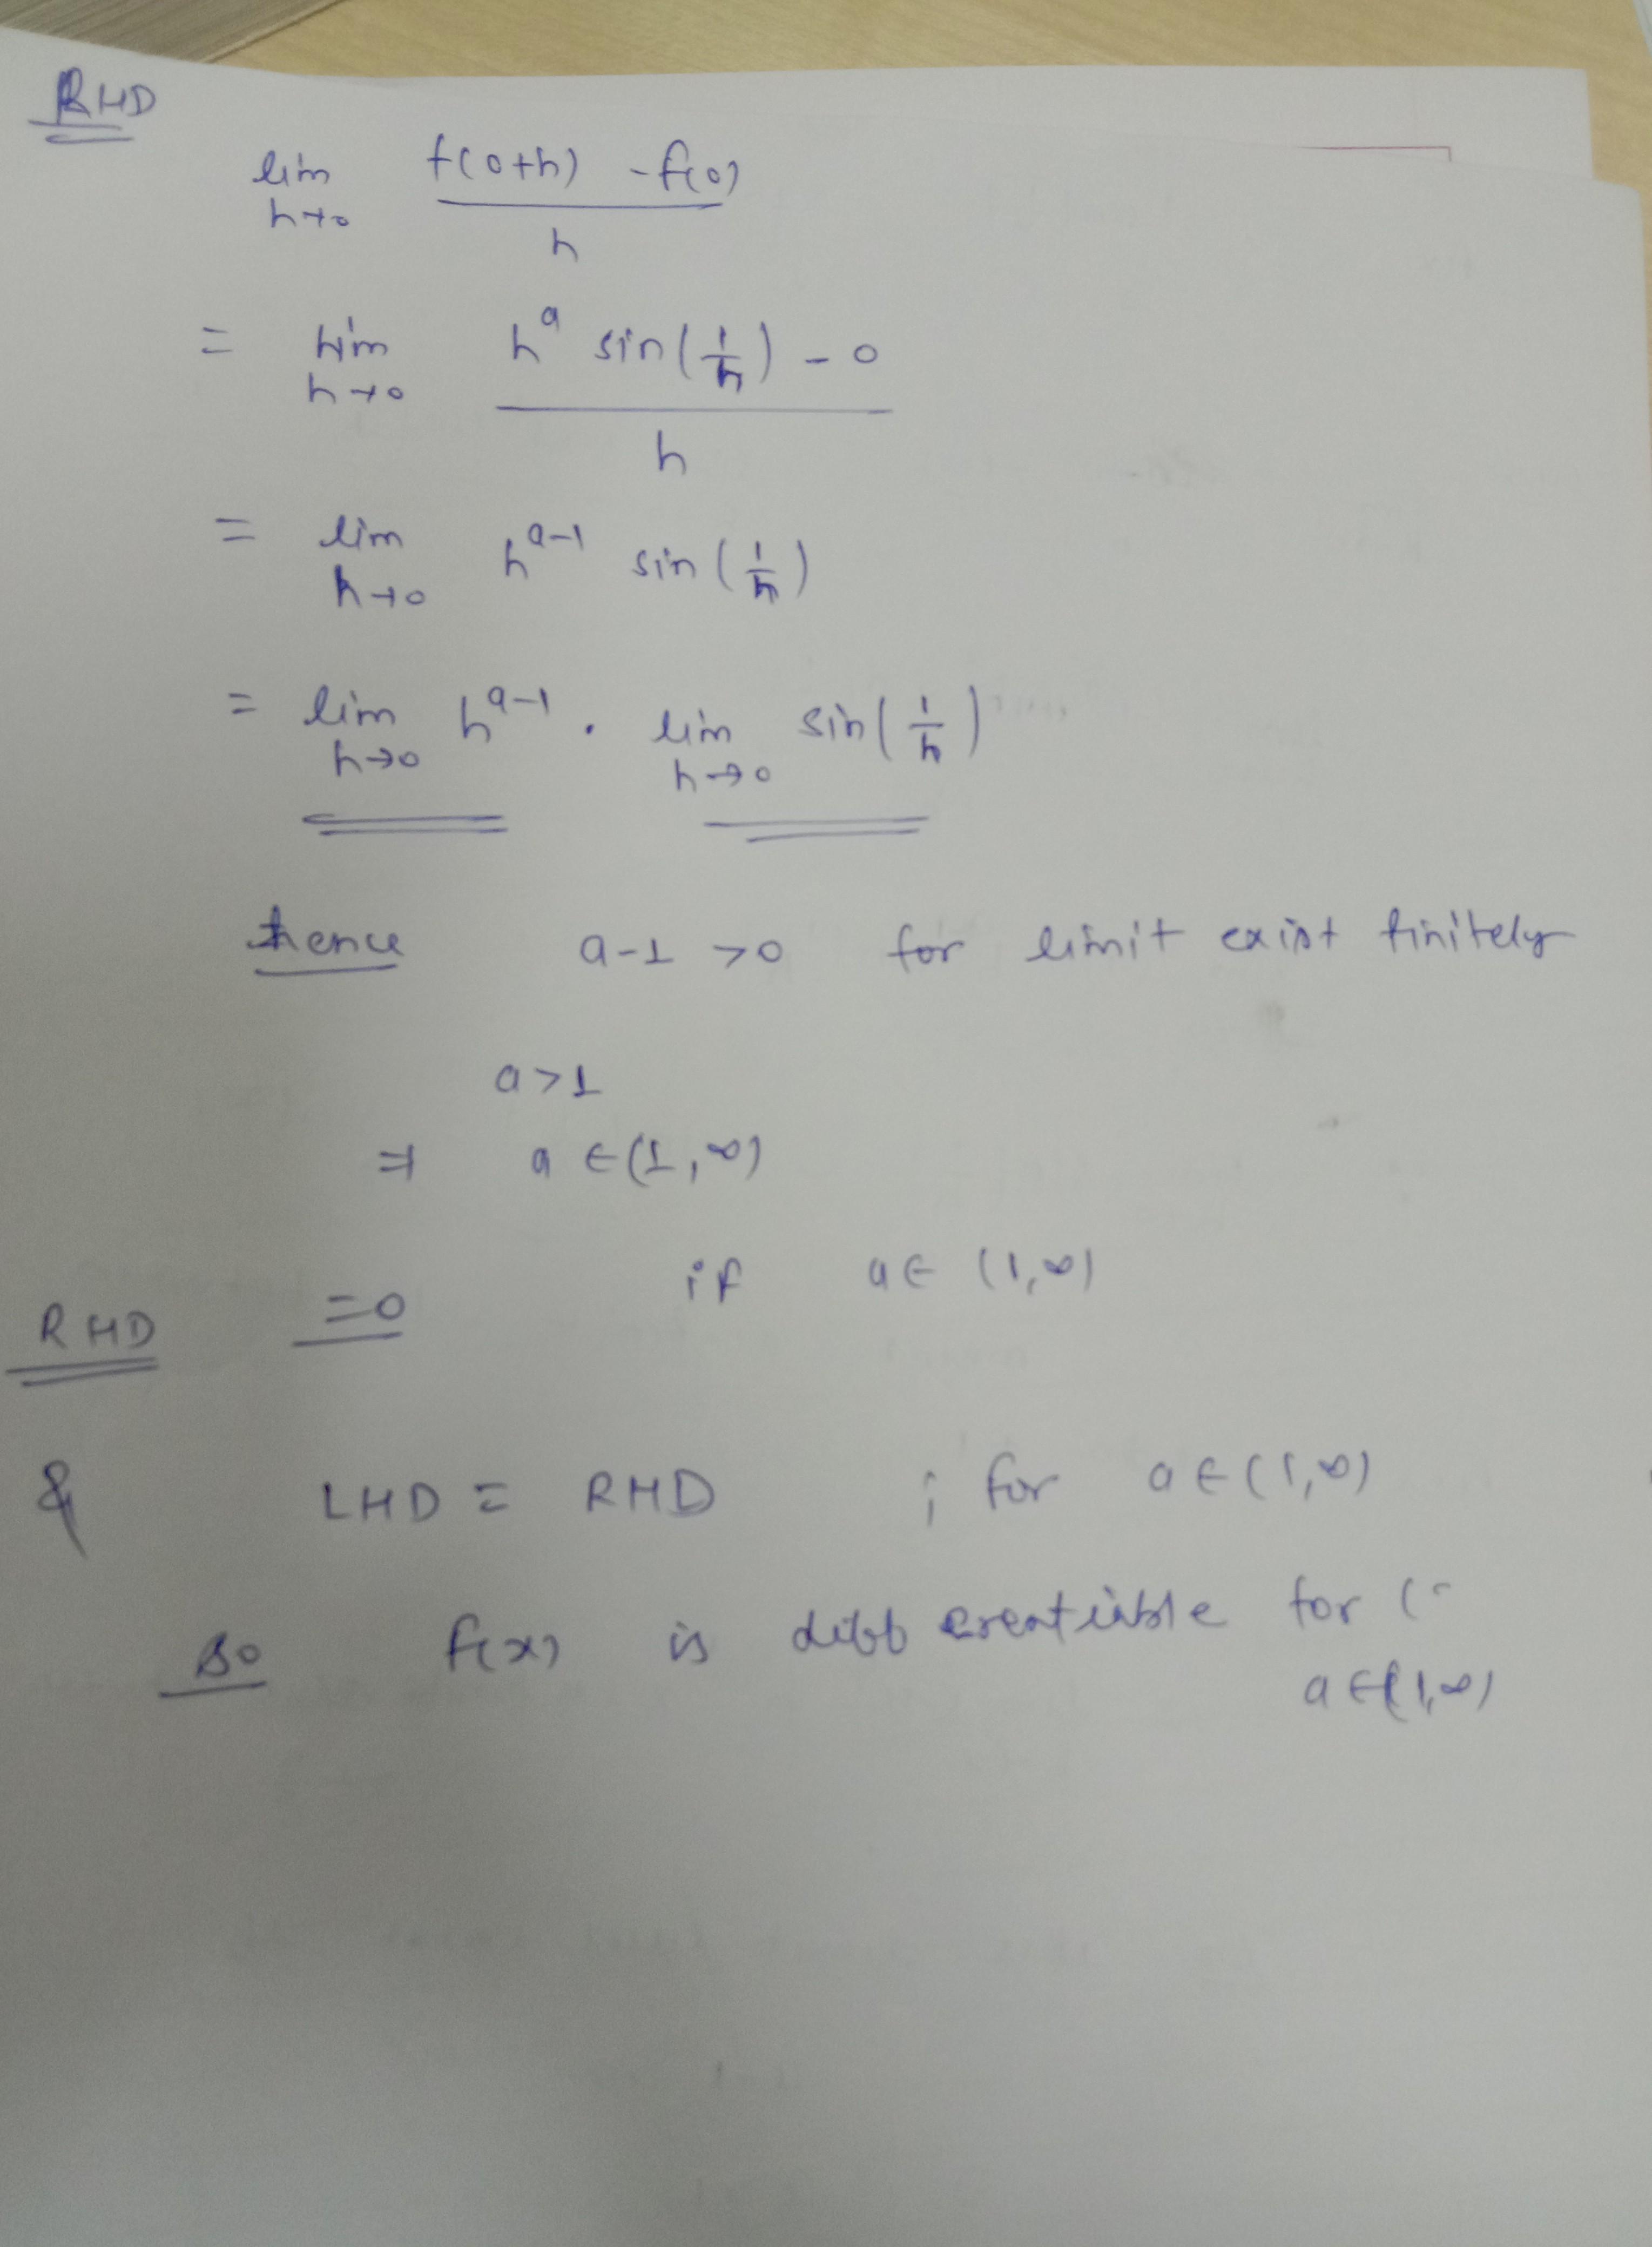 RHD
lim h→0 f(0+h) - f(0) / h
= lim h→0 h^a sin(1/h) - 0 / h
= lim h→0 h^(a-1) sin(1/h)
= lim h→0 h^(a-1) . lim h→0 sin(1/h)
hence a-1 >0 for limit exist finitely
a>1
⇒ a ∈ (1, ∞)
RHD =0 if a ∈ (1, ∞)
& LHD = RHD ; for a ∈ (1, ∞)
so f(x) is differentiable for (
a ∈ (1, ∞)